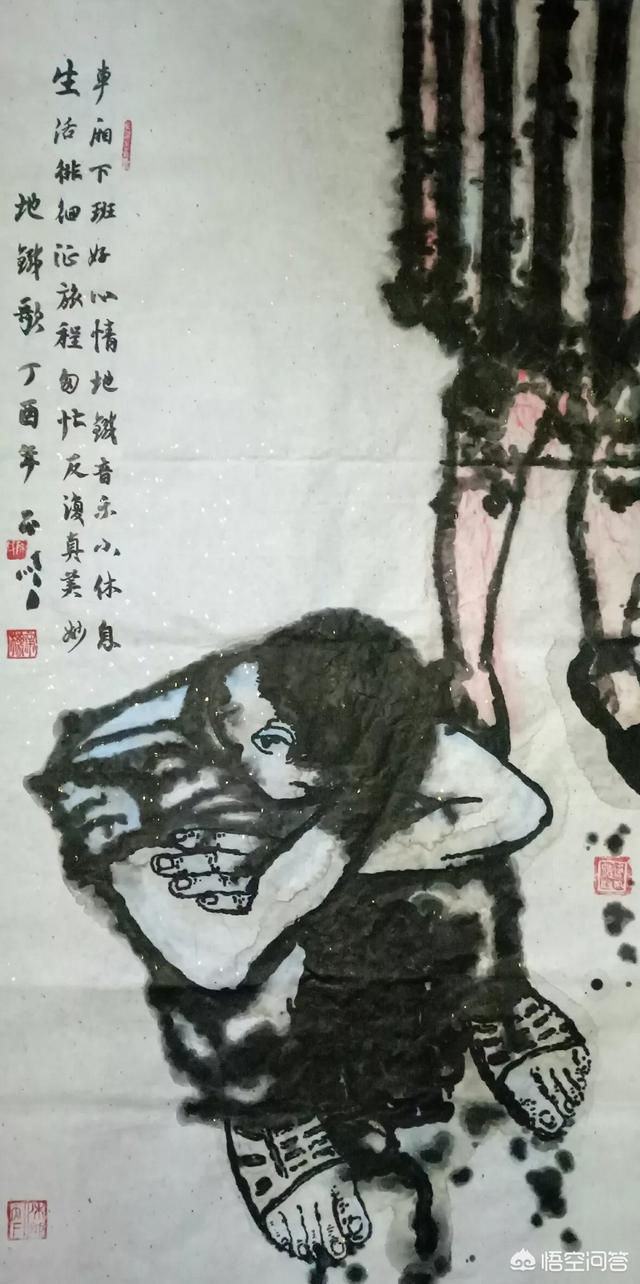 車廂下班好心情地鐵音乐小休息
生活徘徊征旅程匆忙反復真美妙
地鐵歌丁酉年
悟空问答